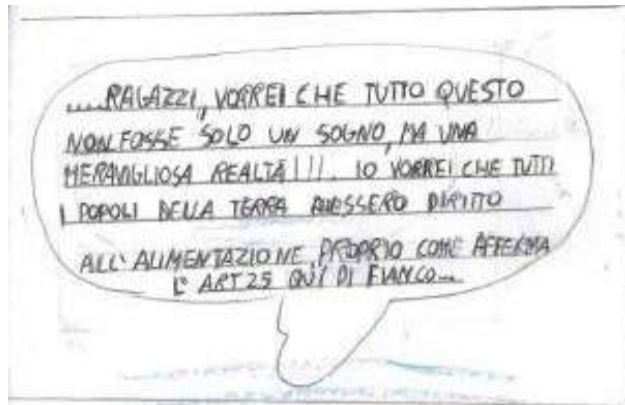 .....RAGAZZI, VORREI CHE TUTTO QUESTO
NON FOSSE SOLO UN SOGNO, MA UNA
MERAVIGLIOSA REALTÀ!!!. IO VORREI CHE TUTTI
I POPOLI DELLA TERRA AVESSERO DIRITTO
ALL'ALIMENTAZIONE, PROPRIO COME AFFERMA
L'ART 25 QUÌ DI FIANCO...